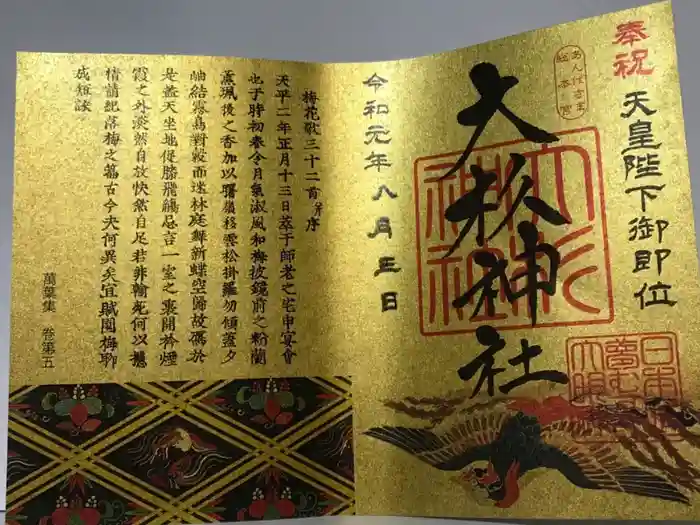 奉祝
天皇陛下御即位
あんばさま
総本宮
大杉神社
大杉
神社
令和元年八月三日
梅花歌三十二首并序
天平二年正月十三日萃于師老之宅申宴會
也于時初春令月氣淑風和梅披鏡前之粉蘭
薫珮後之香加以曙嶺移雲松掛羅勿傾蓋夕
岫結霧鳥對縠而迷林庭舞新蝶空歸故鴈於
是蓋天坐地促膝飛觴忘言一室之裏開衿煙
霞之外淡然自放快然自足若非翰苑何以攄
情請紀落梅之篇古今夫何異矣宜賦園梅聊
成短詠
萬葉集 卷第五